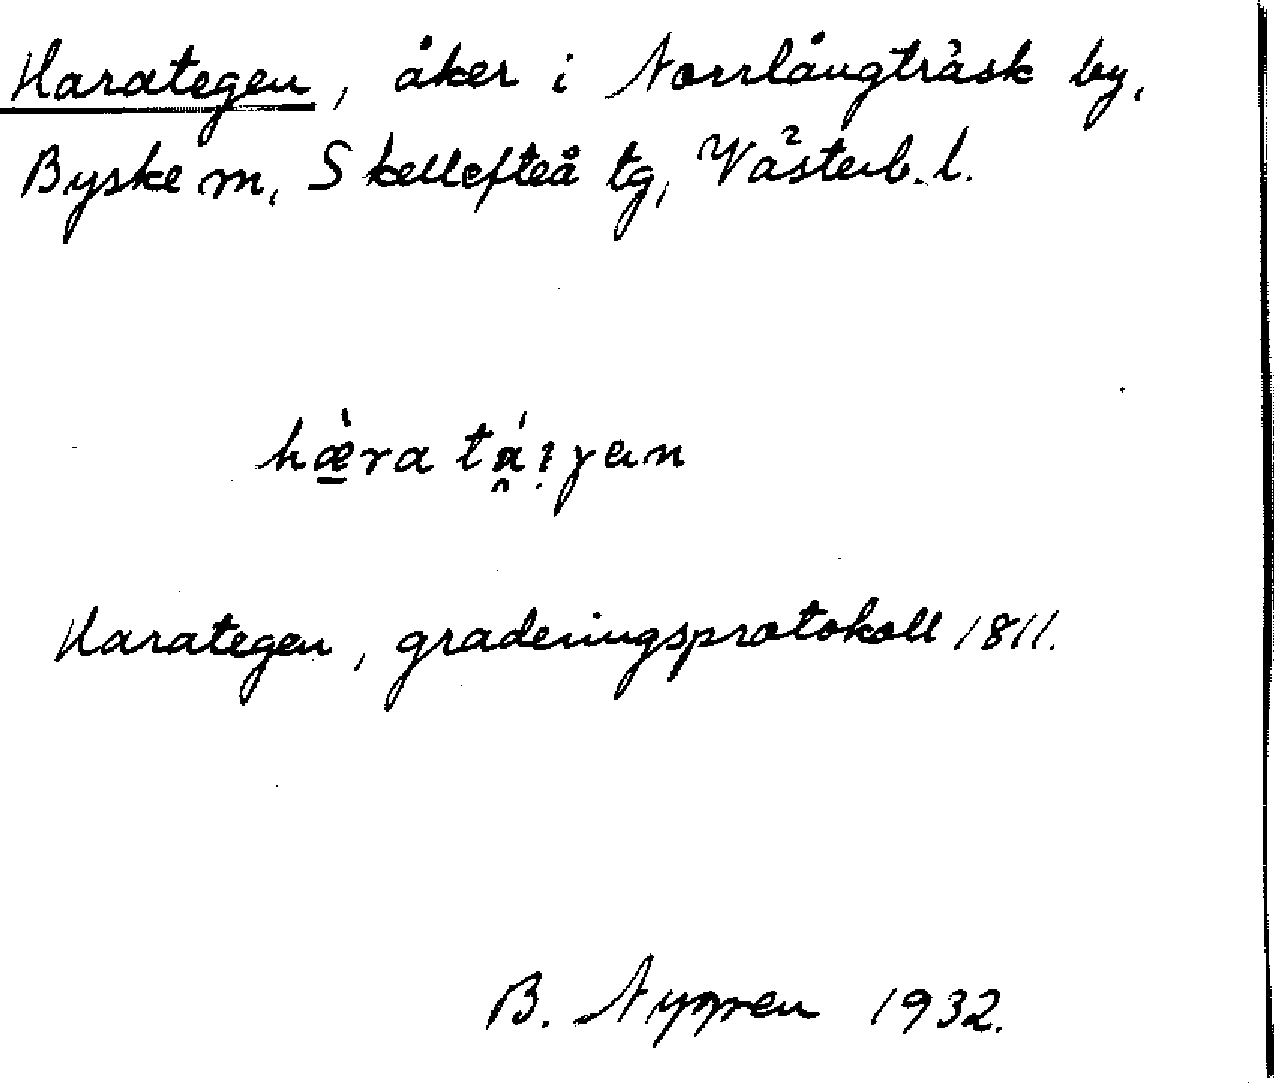 Harategen, åker i Norrlångträsk by,
Byske sn, Skellefteå tg, Västerb. l.
hæ̀ra tá̯i̩γen
Harategen, graderingsprotokoll 1811.
B. Nygren 1932.